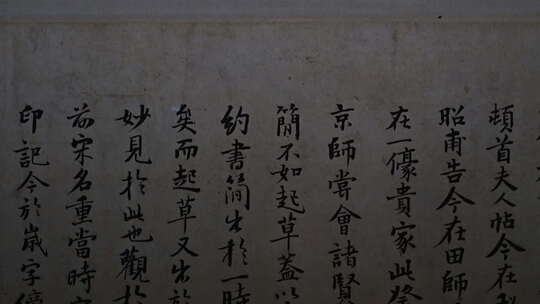 頓首夫人帖今在
昭甫告今在田師
在一豪貴家此
京師嘗會諸賢
簡不如起草蓋以
約書簡生於一時
矣而起草又出於
妙見於此也觀於
前宋名重當時
印記今於歲字